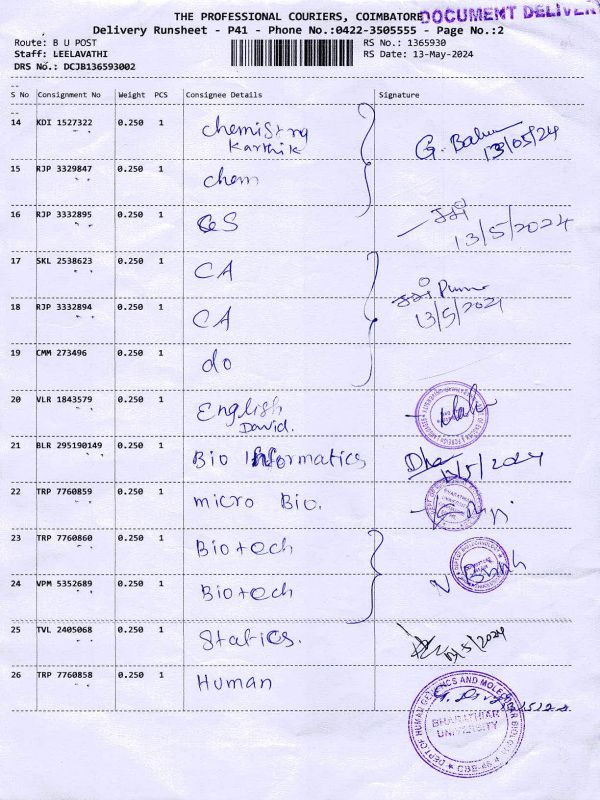 THE PROFESSIONAL COURIERS, COIMBATORE
DOCUMENT DELIVERY
Delivery Runsheet - P41 - Phone No.:0422-3505555 - Page No.:2
Route: B U POST
RS No.: 1365930
Staff: LEELAVATHI
RS Date: 13-May-2024
DRS No.: DCJB136593002
S No Consignment No Weight PCS Consignee Details Signature
14 KDI 1527322 0.250 1 chemistry
Karthik
G. Balu
13/05/24
15 RJP 3329847 0.250 1 chem
16 RJP 3332895 0.250 1 CS
13/5/2024
17 SKL 2538623 0.250 1 CA
13/5/2024
18 RJP 3332894 0.250 1 CA
19 CMM 273496 0.250 1 do
20 VLR 1843579 0.250 1 English
David.
21 BLR 295190149 0.250 1 Bio Informatics
22 TRP 7760859 0.250 1 micro Bio.
23 TRP 7760860 0.250 1 Biotech
24 VPM 5352689 0.250 1 Biotech
25 TVL 2405068 0.250 1 Statics.
26 TRP 7760858 0.250 1 Human
DEPT OF HUMAN GENETICS AND MOLECULAR BIOLOGY
BHARATHIAR
UNIVERSITY